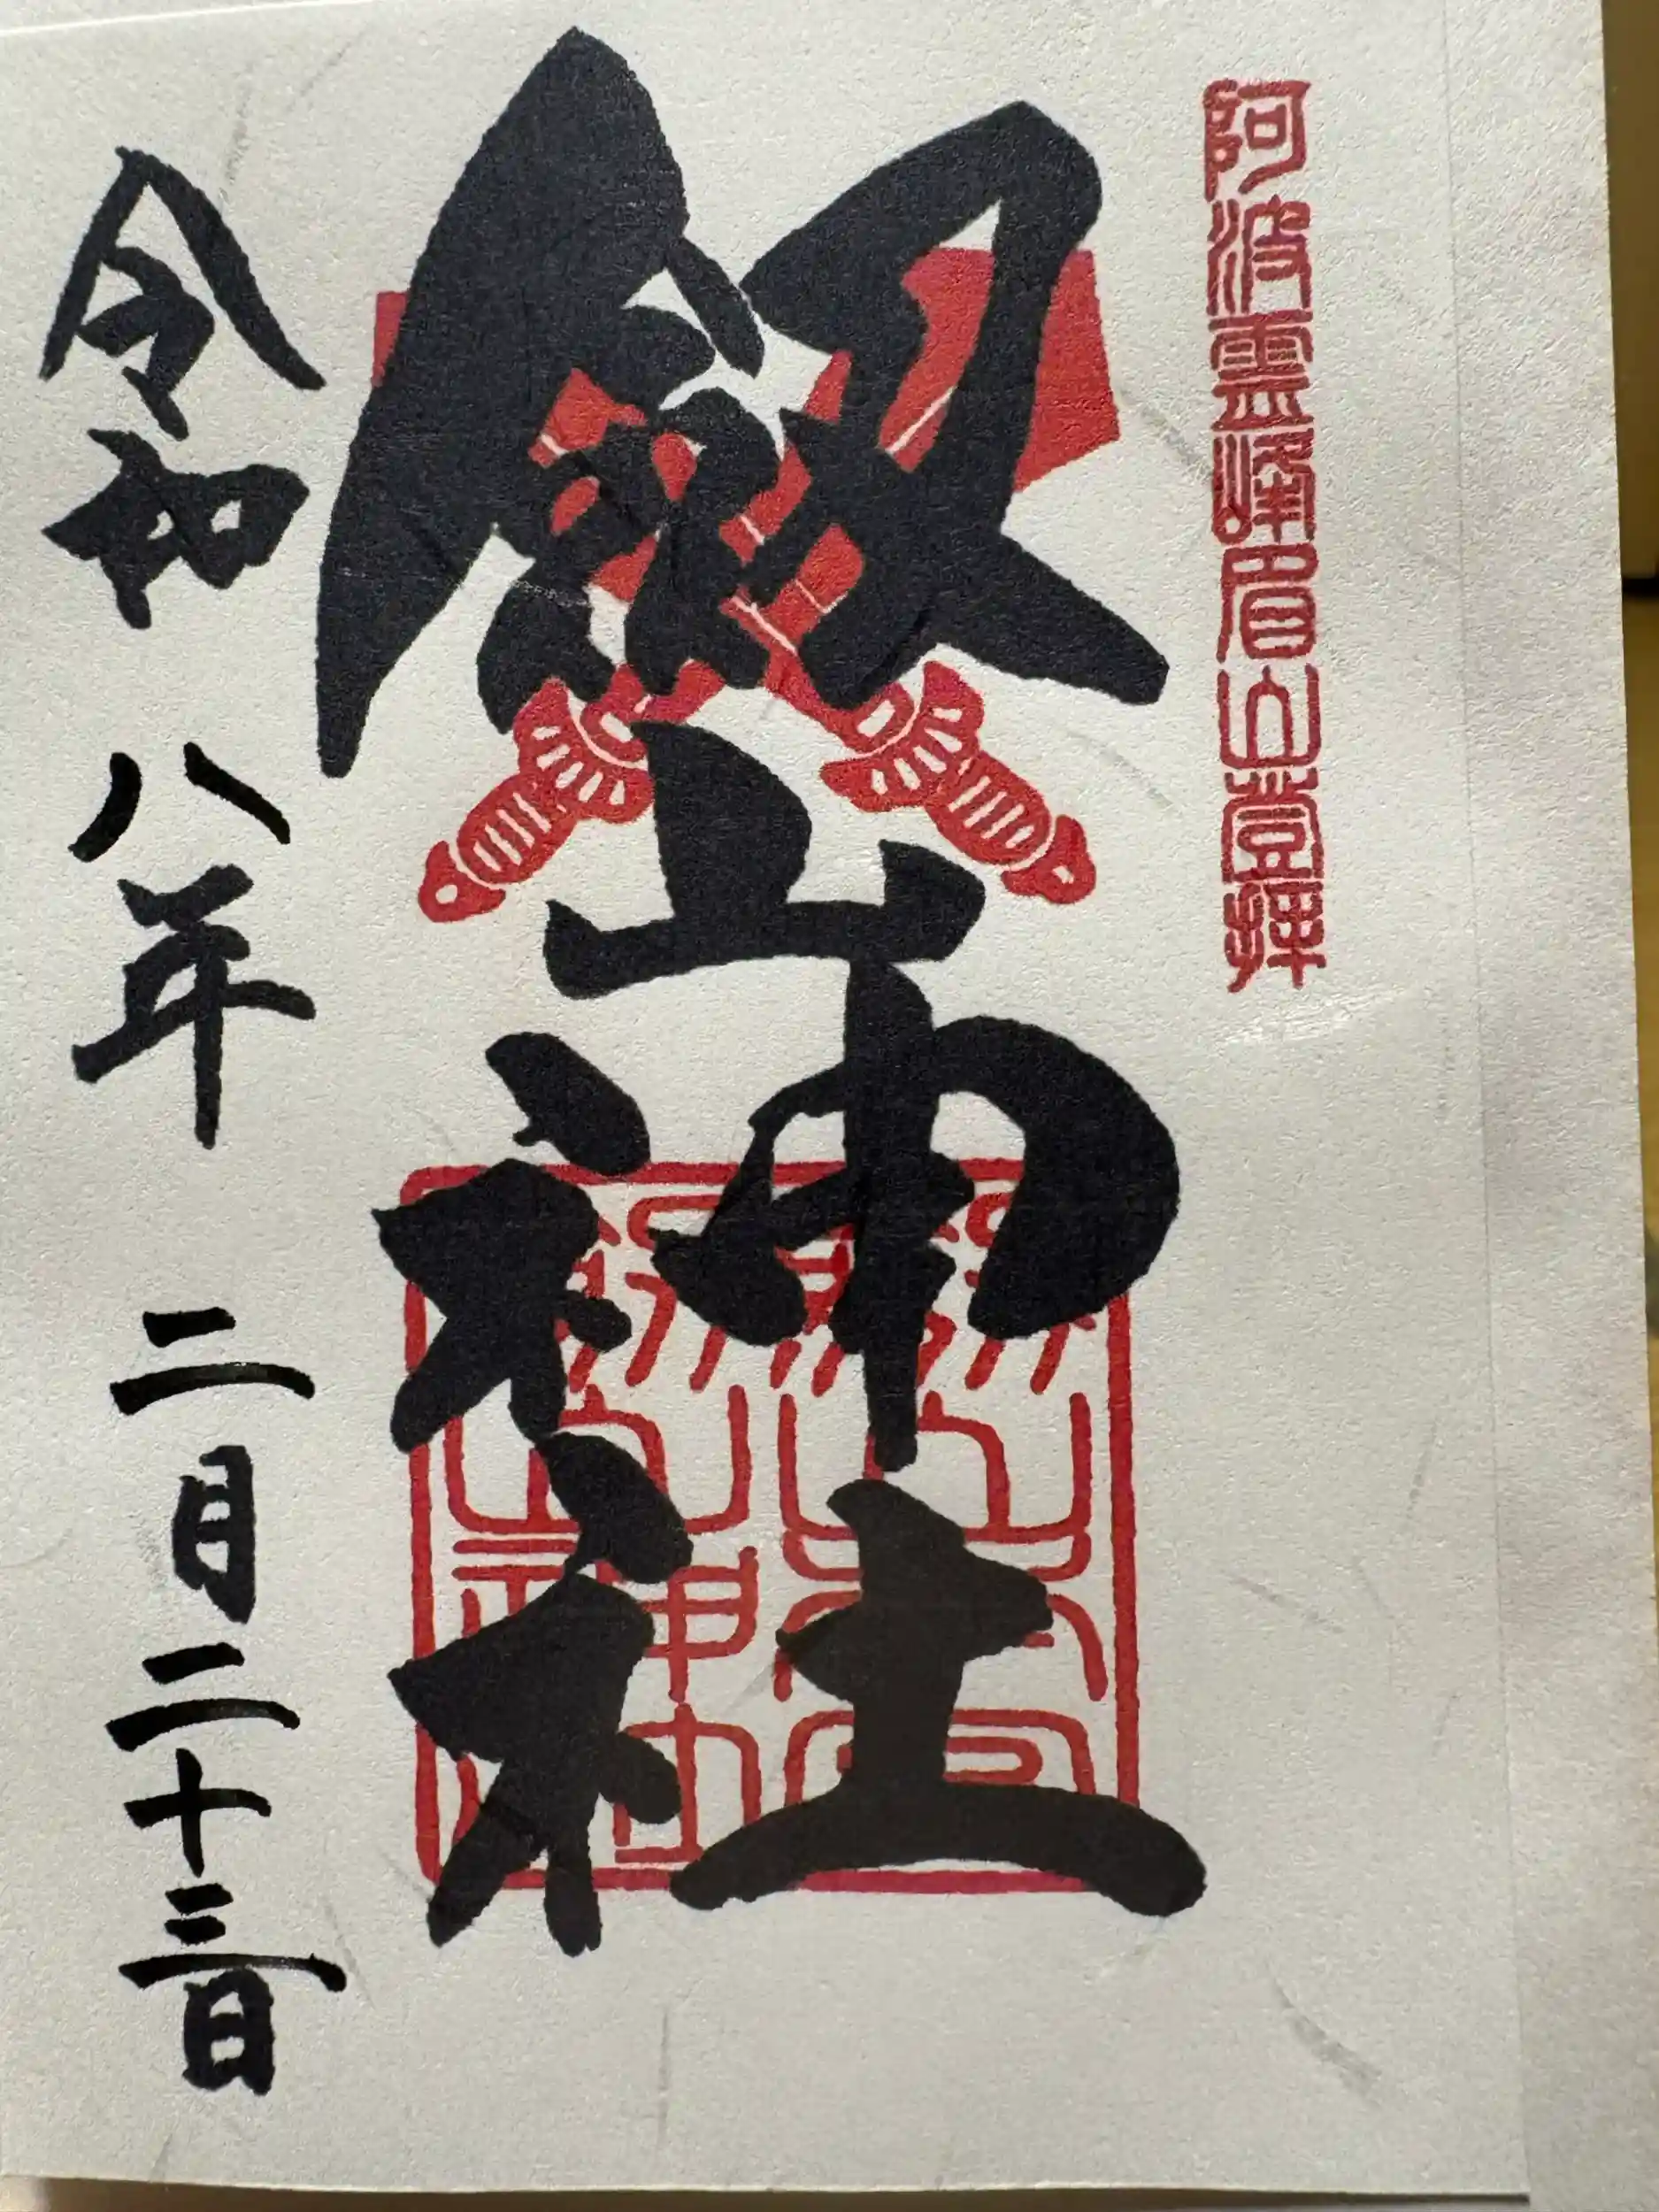 阿波霊峰眉山登拝
剱山神社
令和八年二月二十三日